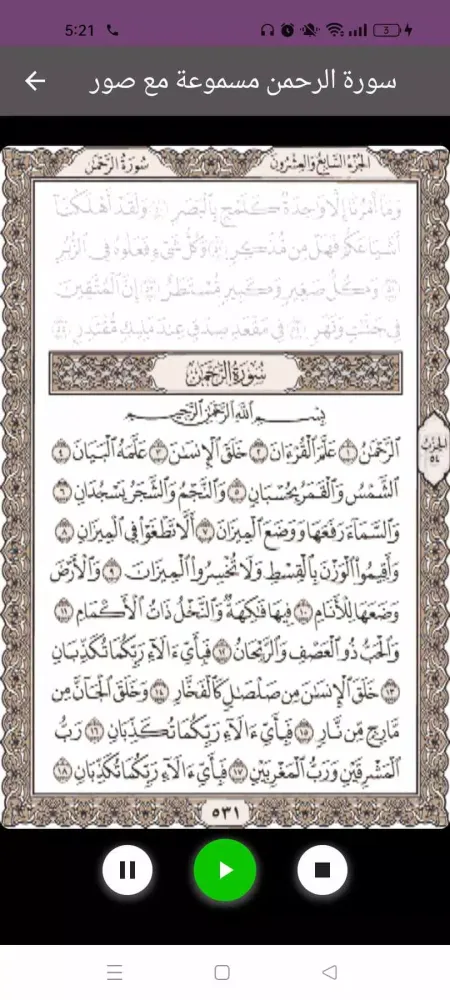 5:21
3
سورة الرحمن مسموعة مع صور
الجزء السابع والعشرون
سورة الرحمن
وَمَا أَمْرُنَا إِلَّا وَاحِدَةٌ كَلَمْحٍ بِالْبَصَرِ ۝٥٠ وَلَقَدْ أَهْلَكْنَا
أَشْيَاعَكُمْ فَهَلْ مِن مُّدَّكِرٍ ۝٥١ وَكُلُّ شَيْءٍ فَعَلُوهُ فِي الزُّبُرِ
۝٥٢ وَكُلُّ صَغِيرٍ وَكَبِيرٍ مُّسْتَطَرٌ ۝٥٣ إِنَّ الْمُتَّقِينَ
فِي جَنَّٰتٍ وَنَهَرٍ ۝٥٤ فِي مَقْعَدِ صِدْقٍ عِندَ مَلِيكٍ مُّقْتَدِرٍ ۝٥٥
سُورَةُ الرَّحْمَٰن
بِسْمِ اللَّهِ الرَّحْمَٰنِ الرَّحِيمِ
الرَّحْمَٰنُ ۝١ عَلَّمَ الْقُرْءَانَ ۝٢ خَلَقَ الْإِنسَٰنَ ۝٣ عَلَّمَهُ الْبَيَانَ ۝٤
الشَّمْسُ وَالْقَمَرُ بِحُسْبَانٍ ۝٥ وَالنَّجْمُ وَالشَّجَرُ يَسْجُدَانِ ۝٦
وَالسَّمَاءَ رَفَعَهَا وَوَضَعَ الْمِيزَانَ ۝٧ أَلَّا تَطْغَوْا فِي الْمِيزَانِ ۝٨
وَأَقِيمُوا الْوَزْنَ بِالْقِسْطِ وَلَا تُخْسِرُوا الْمِيزَانَ ۝٩ وَالْأَرْضَ
وَضَعَهَا لِلْأَنَامِ ۝١٠ فِيهَا فَٰكِهَةٌ وَالنَّخْلُ ذَاتُ الْأَكْمَامِ ۝١١
وَالْحَبُّ ذُو الْعَصْفِ وَالرَّيْحَانُ ۝١٢ فَبِأَيِّ ءَالَاءِ رَبِّكُمَا تُكَذِّبَانِ
۝١٣ خَلَقَ الْإِنسَٰنَ مِن صَلْصَٰلٍ كَالْفَخَّارِ ۝١٤ وَخَلَقَ الْجَانَّ مِن
مَّارِجٍ مِّن نَّارٍ ۝١٥ فَبِأَيِّ ءَالَاءِ رَبِّكُمَا تُكَذِّبَانِ ۝١٦ رَبُّ
الْمَشْرِقَيْنِ وَرَبُّ الْمَغْرِبَيْنِ ۝١٧ فَبِأَيِّ ءَالَاءِ رَبِّكُمَا تُكَذِّبَانِ ۝١٨
الحزب
٥٤
٥٣١